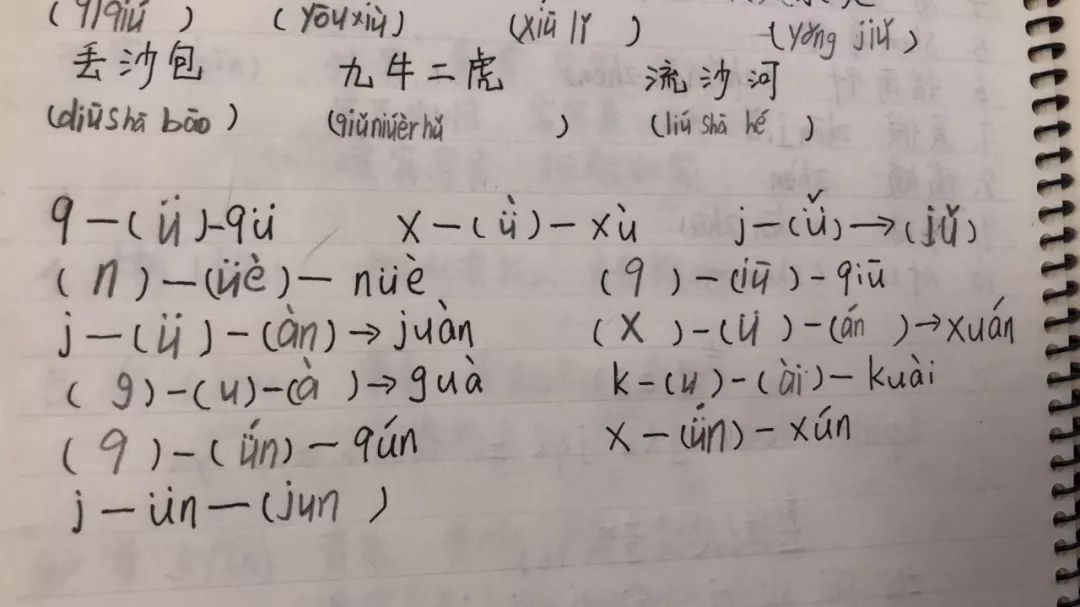 (qìqiú) (yōuxiù) (xiū lǐ) (yǒng jiǔ)
丢沙包 九牛二虎 流沙河
(diūshā bāo) (jiǔniúèrhǔ) (liú shā hé)
q—(ü)—qü x—(ǜ)—xù j—(ǚ)→(jǔ)
(n)—(üè)—nüè (q)—(iū)—qiū
j—(ü)—(àn)→juàn (x)—(ü)—(án)→xuán
(g)—(u)—(à)→guà k—(u)—(ài)—kuài
(q)—(ǘn)—qún x—(ǘn)—xún
j—ün—(jun)